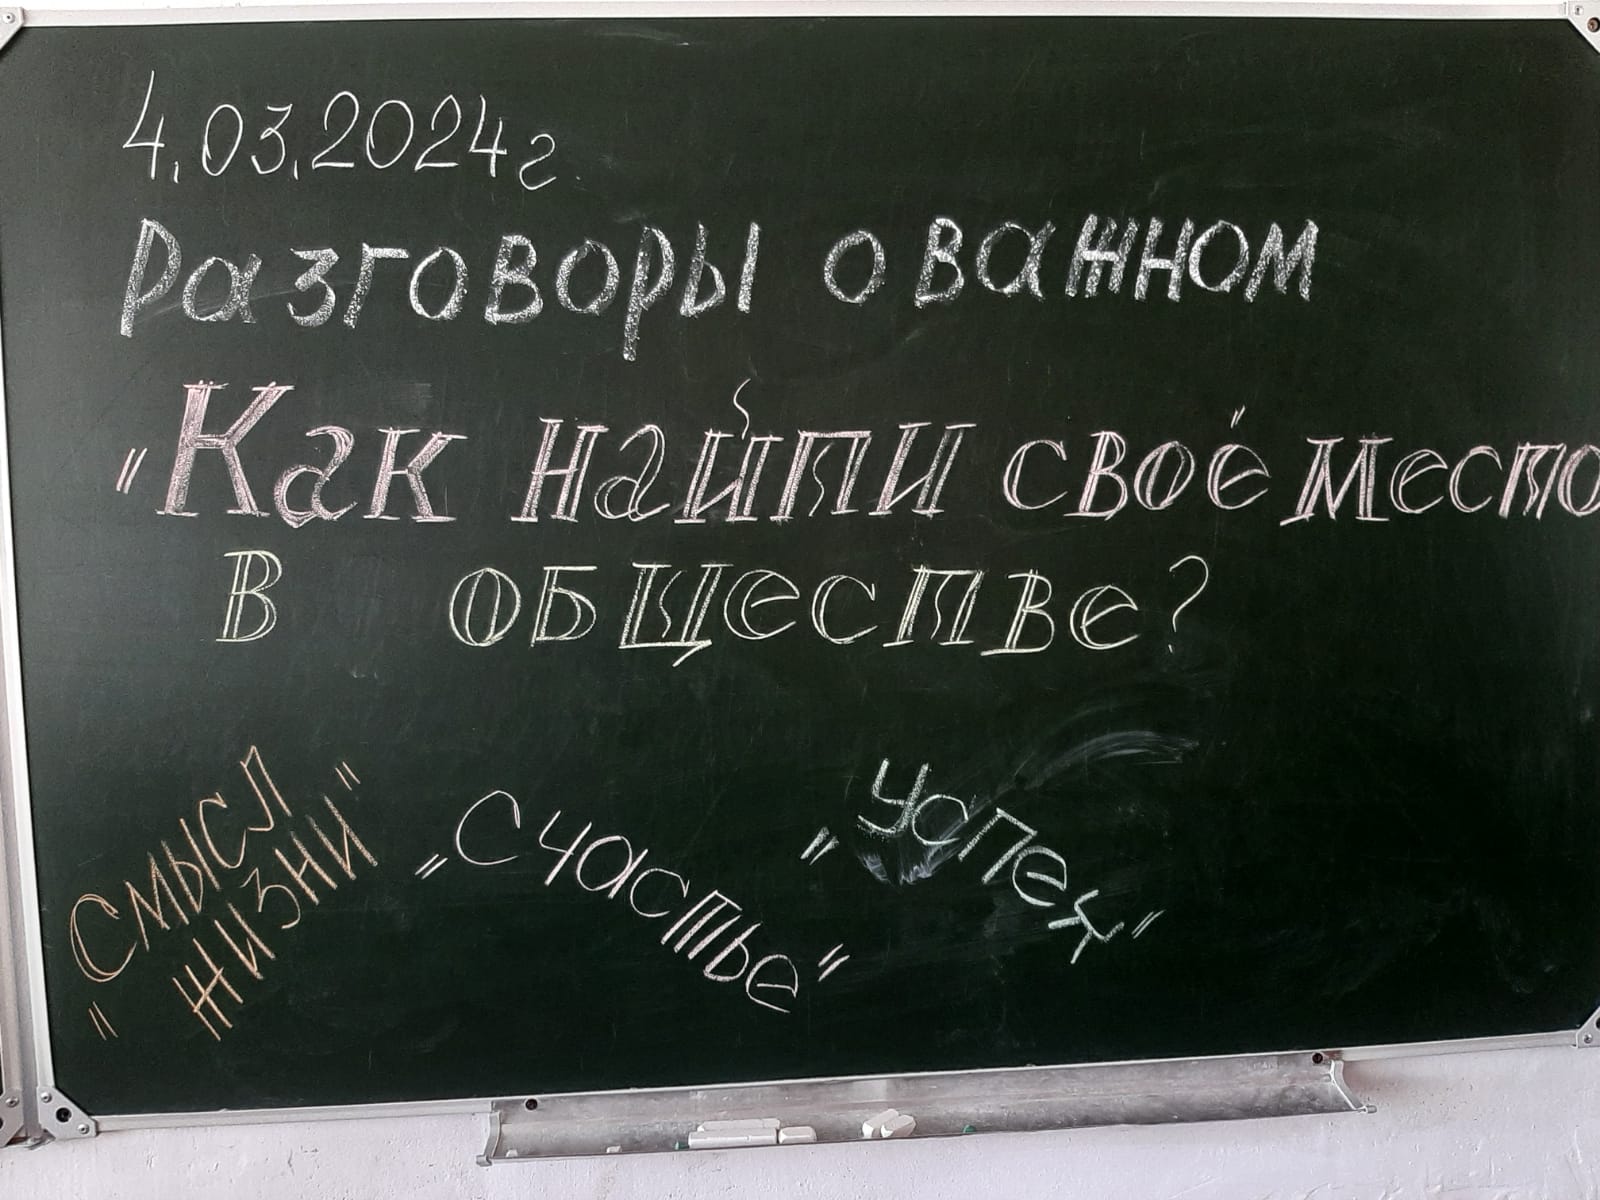 4.03.2024г.
Разговоры о важном
"Как найти своё место
в обществе?
"Смысл
жизни"
"Счастье"
"Успех"